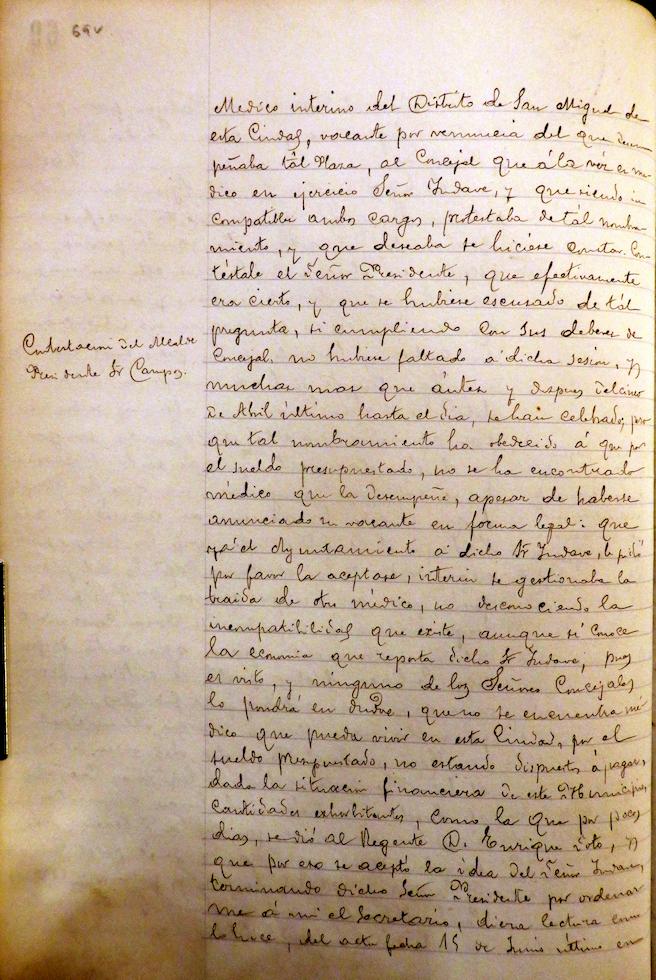 69v
Medico interino del Distrito de San Miguel de
esta Ciudad, vacante por renuncia del que desem
peñaba tál Plaza, al Concejal que á la véz es me
dico en ejercicio Señor Yudave, y que siendo in
compatible ambos cargos, protestaba de tál nombra
miento, y que deseaba se hiciése constar. Con
téstale el Señor Presidente, que efectivamente
era cierto, y que se hubiese escusado de tál
pregunta, si cumpliendo con sus deberes de
Contestacion del Alcalde
Presidente Sr Campos.
Concejal, no hubiese faltado á dicha sesión, y
muchas mas que ántes y despues del cinco
de Abril último hasta el dia, se han celebrado; pero
que tal nombramiento ha obedecido á que por
el sueldo presupuestado, no se ha encontrado
médico que la desempeñe, apesar de haberse
anunciado su vacante en forma legal: que
el Ayuntamiento á dicho Sr Yudave, le pidió
por favor la aceptase, interin se gestionaba la
traida de otro médico, no desconociendo la
incompatibilidad que existe, aunque sí conoce
la economia que reporta dicho Sr Yudave; pues
es visto, y ninguno de los Señores Concejales
lo pondrá en duda, que no se encuentra mé
dico que pueda vivir en esta Ciudad, por el
sueldo presupuestado, no estando dispuesto á pagar,
dada la situacion financiera de este Municipio,
cantidades exhorbitantes, como la que por pocos
dias, se dió al Regente D. Enrique Soto, y
que por eso se aceptó la idea del Señor Yudave,
terminando dicho Señor Presidente por ordenar
me á mi el Secretario, diera lectura como
lo hice, del acta fecha 15 de Junio último en